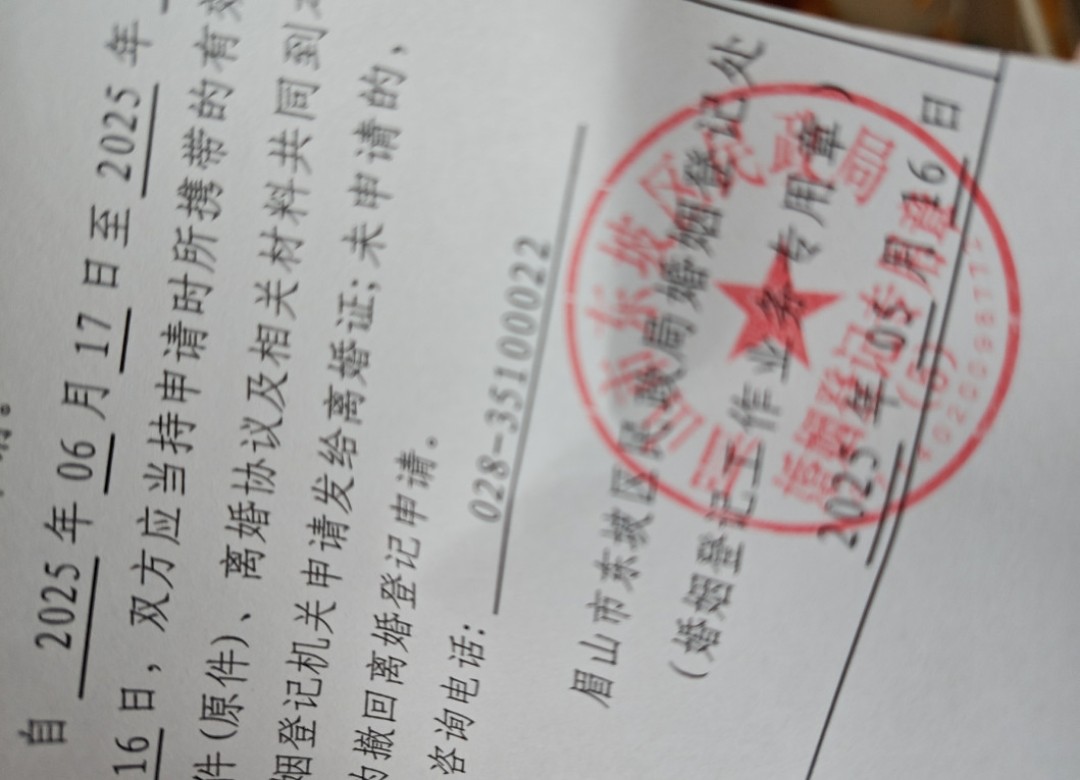 自 2025 年 06 月 17 日至 2025 年
16 日，双方应当持申请时所携带的有效
件(原件)、离婚协议及相关材料共同到
姻登记机关申请发给离婚证；未申请的，
撤回离婚登记申请。
咨询电话： 028-35100022
眉山市东坡区民政局婚姻登记处
（婚姻登记工作业务专用章）
2025 年 05 月 16 日
眉山市东坡区民政局
婚姻登记专用章
(6)